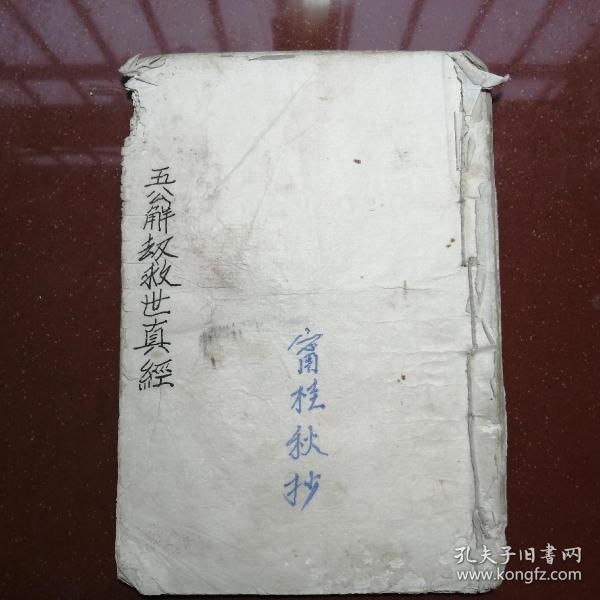 五公解劫救世真經
甯桂秋抄
孔夫子旧書网
www.kongfz.com